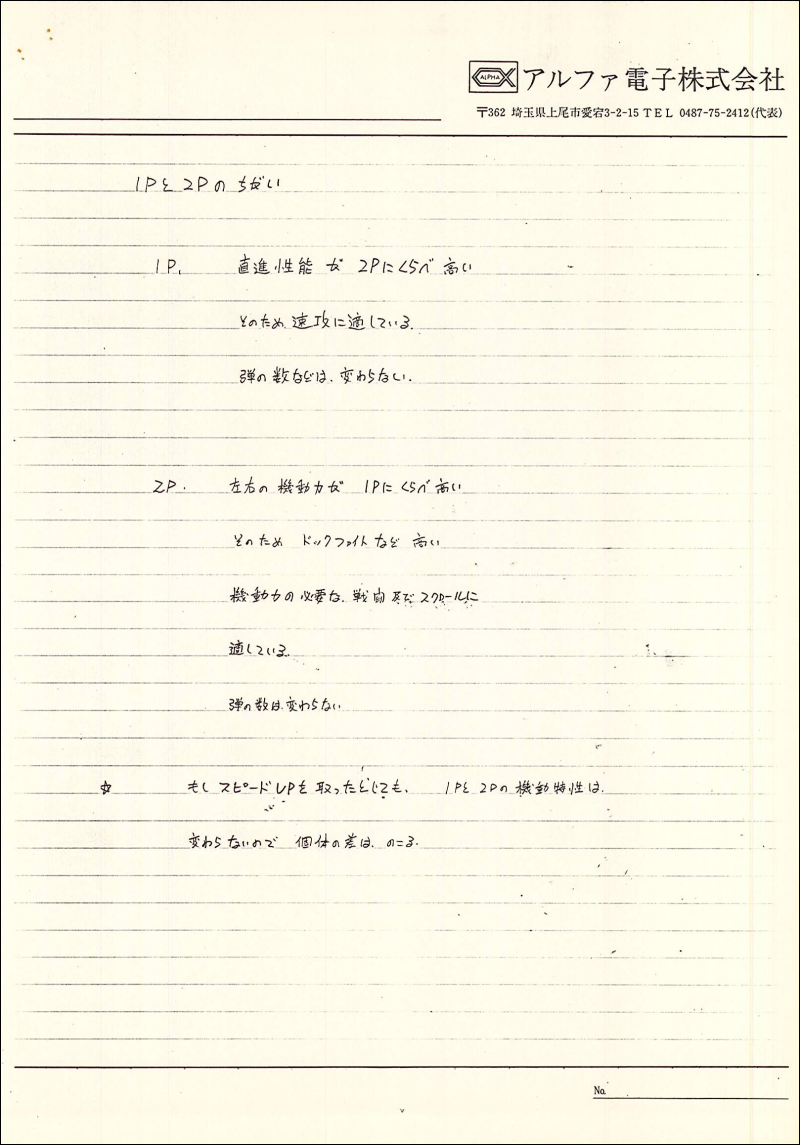 ALPHA アルファ電子株式会社
〒362 埼玉県上尾市愛宕3-2-15 TEL 0487-75-2412(代表)
1Pと2Pのちがい
1P. 直進性能が 2Pにくらべ高い
そのため、速攻に適している.
弾の数などは、変わらない.
2P. 左右の機動力が 1Pにくらべ高い
そのため ドックファイトなど 高い
機動力の必要な、戦闘及びスクロールに
適している.
弾の数は、変わらない
☆ もしスピードUPを取ったとしても、 1Pと2Pの機動特性は、
変わらないので 個体の差は、のこる.
No.